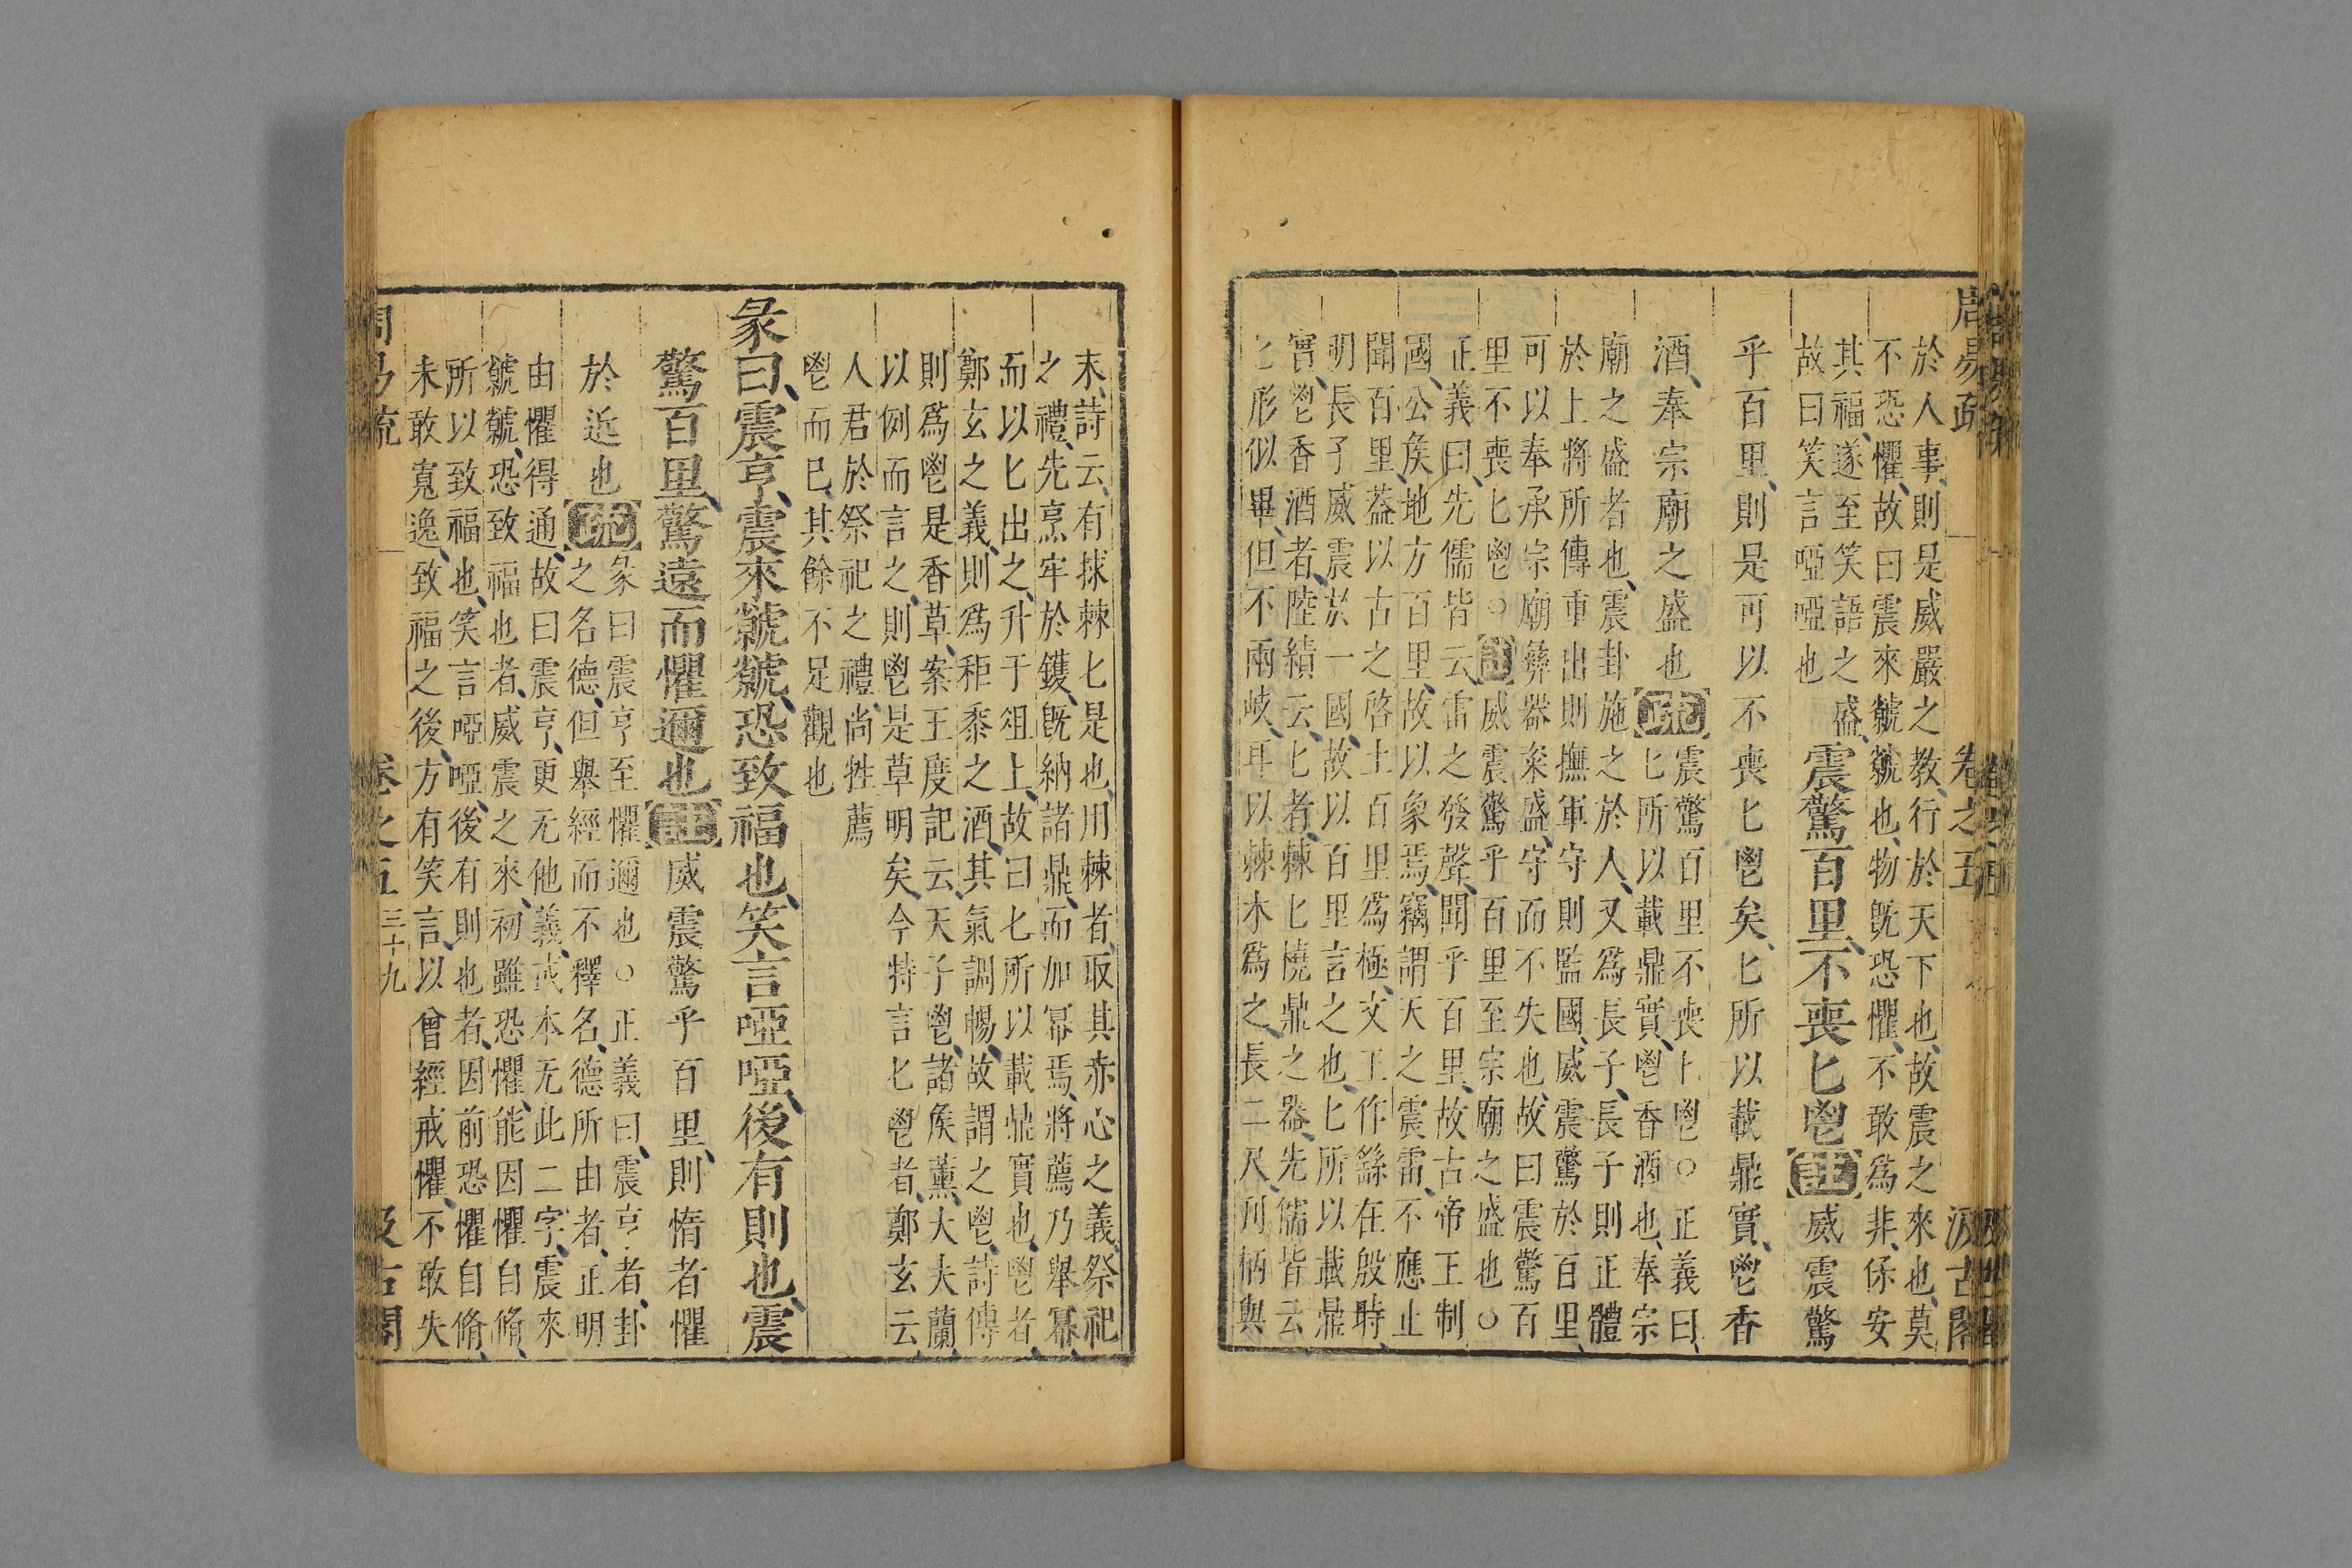 於人事則是威嚴之教行於天下也故震之來也莫
不恐懼故曰震來虩虩也物旣恐懼不敢爲非保安
其福遂至笑語之盛
故曰笑言啞啞也
震驚百里不喪匕鬯註威震驚
乎百里則是可以不喪匕鬯矣匕所以載鼎實鬯香
酒奉宗廟之盛也疏
震驚百里不喪匕鬯○正義曰
匕所以載鼎實鬯香酒也奉宗
廟之盛者也震卦施之於人又爲長子長子則正體
於上將所傳重出則撫軍守則監國威震驚於百里
可以奉承宗廟彝器粢盛守而不失也故曰震驚百
里不喪匕鬯○註威震驚乎百里至宗廟之盛也○
正義曰先儒皆云雷之發聲聞乎百里故古帝王制
國公矦地方百里故以象焉竊謂天之震雷不應止
聞百里葢以古之啓土百里爲極文王作繇在殷時
明長子威震於一國故以百里言之也匕所以載鼎
實鬯香酒者陸績云匕者棘匕橈鼎之器先儒皆云
匕形似畢但不兩岐耳以棘木爲之長二尺刋柄與
末詩云有捄棘匕是也用棘者取其赤心之義祭祀
之禮先烹牢於鑊旣納諸鼎而加冪焉將薦乃舉冪
而以匕出之升于俎上故曰匕所以載鼎實也鬯者
鄭玄之義則爲秬黍之酒其氣調暢故謂之鬯詩傳
則爲鬯是香草案王度記云天子鬯諸矦薰大夫蘭
以例而言之則鬯是草明矣今特言匕鬯者鄭玄云
人君於祭祀之禮尚牲薦
鬯而已其餘不足觀也
彖曰震亨震來虩虩恐致福也笑言啞啞後有則也震
驚百里驚遠而懼邇也註威震驚乎百里則惰者懼
於近也疏
彖曰震亨至懼邇也○正義曰震亨者卦
之名德但舉經而不釋名德所由者正明
由懼得通故曰震亨更无他義或本无此二字震來
虩虩恐致福也者威震之來初雖恐懼能因懼自脩
所以致福也笑言啞啞後有則也者因前恐懼自脩
未敢寬逸致福之後方有笑言以曾經戒懼不敢失
周易疏 卷之五 三十九 汲古閣